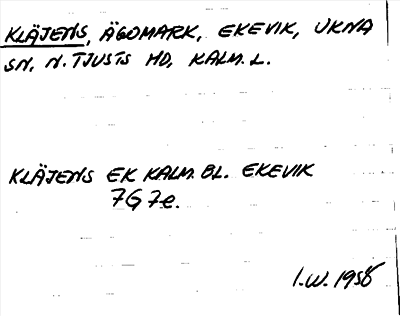 KLÄJENS, ÄGOMARK, EKEVIK, UKNA
SN, N. TJUSTS HD, KALM. L.
KLÄJENS EK KALM. BL. EKEVIK
7G7e.
I.W. 1958